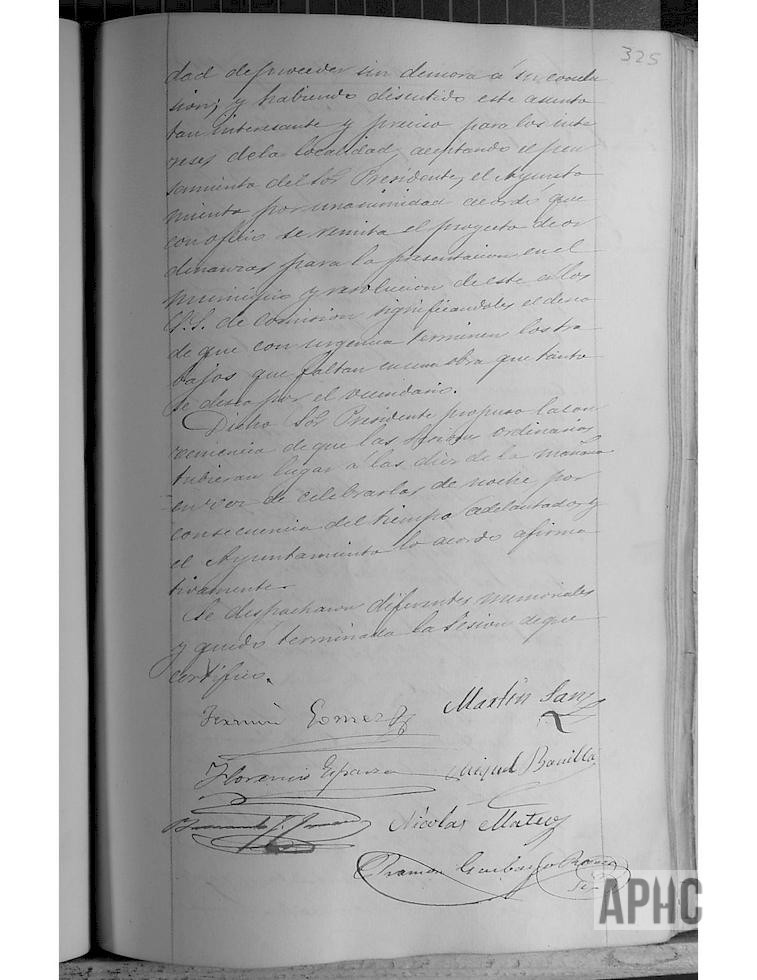 325
dad de proceder sin demora á su conclu
sion; y habiendo discutido este asunto
tan interesante y preciso para los inte
reses de la localidad, aceptando el pen
samiento del Sor Presidente, el Ayunta
miento por unanimidad acordó que
con oficio se remita el proyecto de or
denanzas para la presentacion en el
municipio y resolucion de este a los
S.S. de Comision significandoles el deseo
de que con urgencia terminen los tra
bajos que faltan en una obra que tanto
se desea por el vecindario.
Dicho Sor Presidente propuso la con
veniencia de que las sesiones ordinarias
tubieran lugar á las diez de la mañana
en vez de celebrarlas de noche por
consecuencia del tiempo adelantado, y
el Ayuntamiento lo acordó afirma
tivamente.
Se despacharon diferentes memoriales
y quedó terminada la Sesion de que
certifico.
Fermin Gomez Martin Sanz
Florencio Esparza Miguel Bonilla
Nicolas Mateo
Ramon
APHC